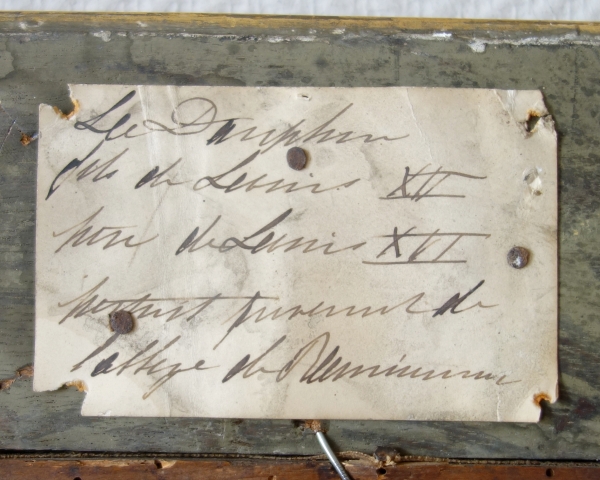 Le Dauphin
fils de Louis XV
père de Louis XVI
portrait provenant de
l'abbaye de Remiremont